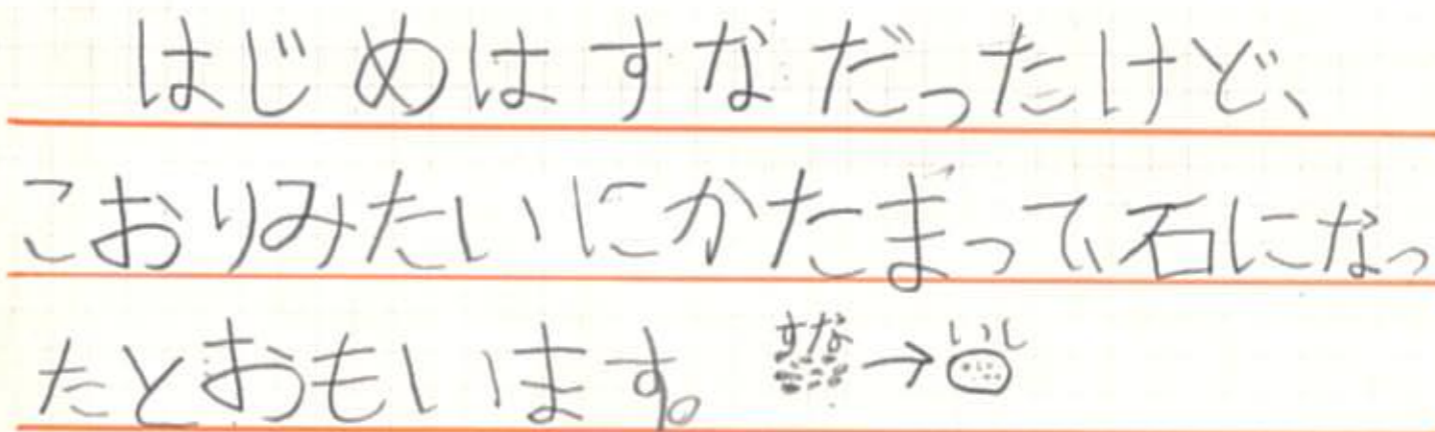 はじめはすなだったけど、
こおりみたいにかたまって、石になっ
たとおもいます。 すな→いし